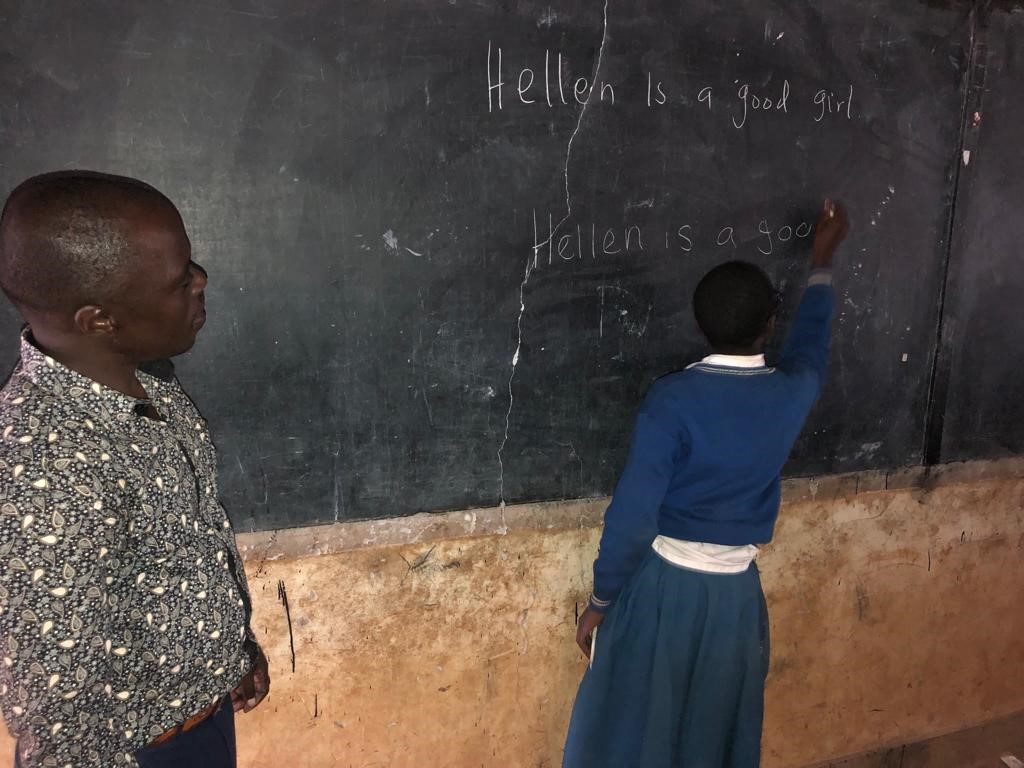 Hellen Is a good girl.
Hellen is a goo